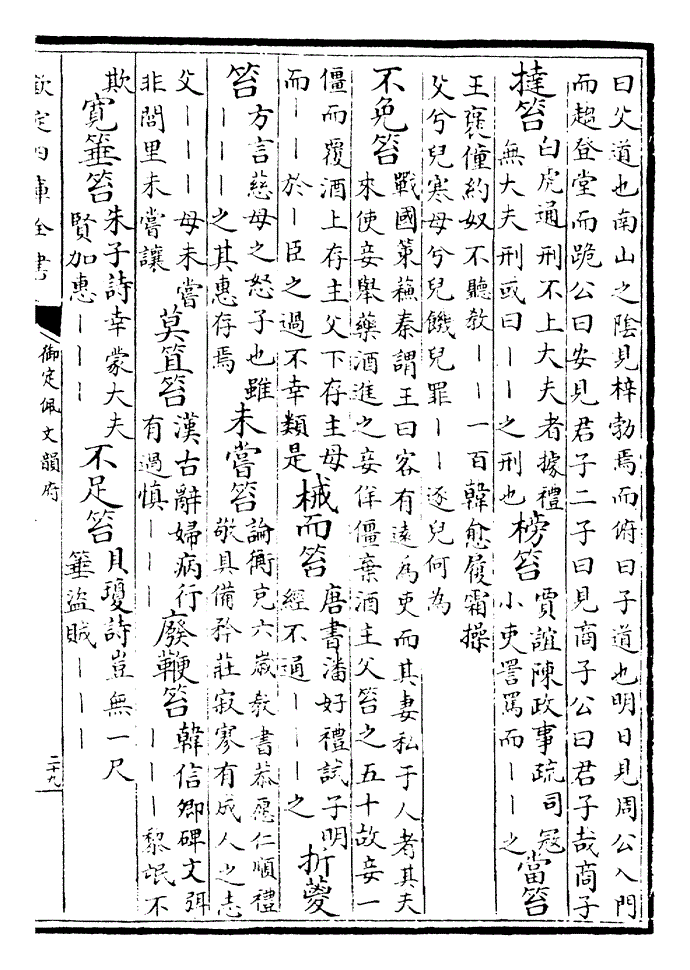 曰父道也南山之陰見梓勃焉而俯曰子道也明日見周公入門
而趨登堂而跪公曰安見君子二子曰見商子公曰君子哉商子
撻笞
白虎通刑不上大夫者據禮
無大夫刑或曰丨丨之刑也
榜笞
賈誼陳政事疏司冦
小吏詈罵而丨丨之
當笞
王襃僮約奴不聽教丨丨一百韓愈履霜操
父兮兒寒母兮兒饑兒罪丨丨逐兒何為
不免笞
戰國策蘇秦謂王曰客有遠為吏而其妻私于人者其夫
來使妾舉藥酒進之妾佯僵棄酒主父笞之五十故妾一
僵而覆酒上存主父下存主母
而丨丨於丨臣之過不幸類是
械而笞
唐書潘好禮試子明
經不通丨丨丨之
折葼
笞
方言慈母之怒子也雖
丨丨丨之其惠存焉
未嘗笞
論衡充六歲教書恭愿仁順禮
敬具備矜莊寂寥有成人之志
父丨丨丨母未嘗
非閭里未嘗讓
莫笪笞
漢古辭婦病行
有過慎丨丨丨
廢鞭笞
韓信卿碑文弭
丨丨丨黎氓不
欺
寛箠笞
朱子詩幸蒙大夫
賢加惠丨丨丨
不足笞
貝瓊詩豈無一尺
箠盜賊丨丨丨
欽定四庫全書
御定佩文韻府
二十九